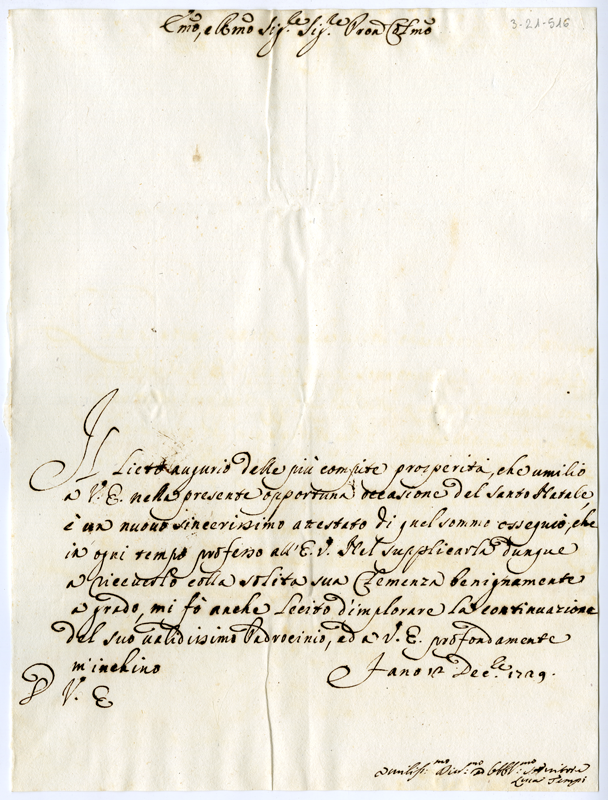 Emo, e Rmo Sig.re Sig.re Pron Colmo
3-21-516
Il Lieto augurio delle più compite prosperità, che umilio
a V. E. nella presente opportuna occasione del Santo Natale,
è un nuovo sincerissimo attestato di quel sommo ossequio, che
in ogni tempo professo all'E. V. Nel supplicarla dunque
a riceverlo colla solita sua Clemenza benignamente
a grado, mi fò anche Lecito d'implorare la continuazione
del suo validissimo Padrocinio, ed a V. E. profondamente
m'inchino
Fano 12 Dec.e 1729.
D V. E
Umilis:mo Div:mo ed Obbl:mo Servitore
Tempi